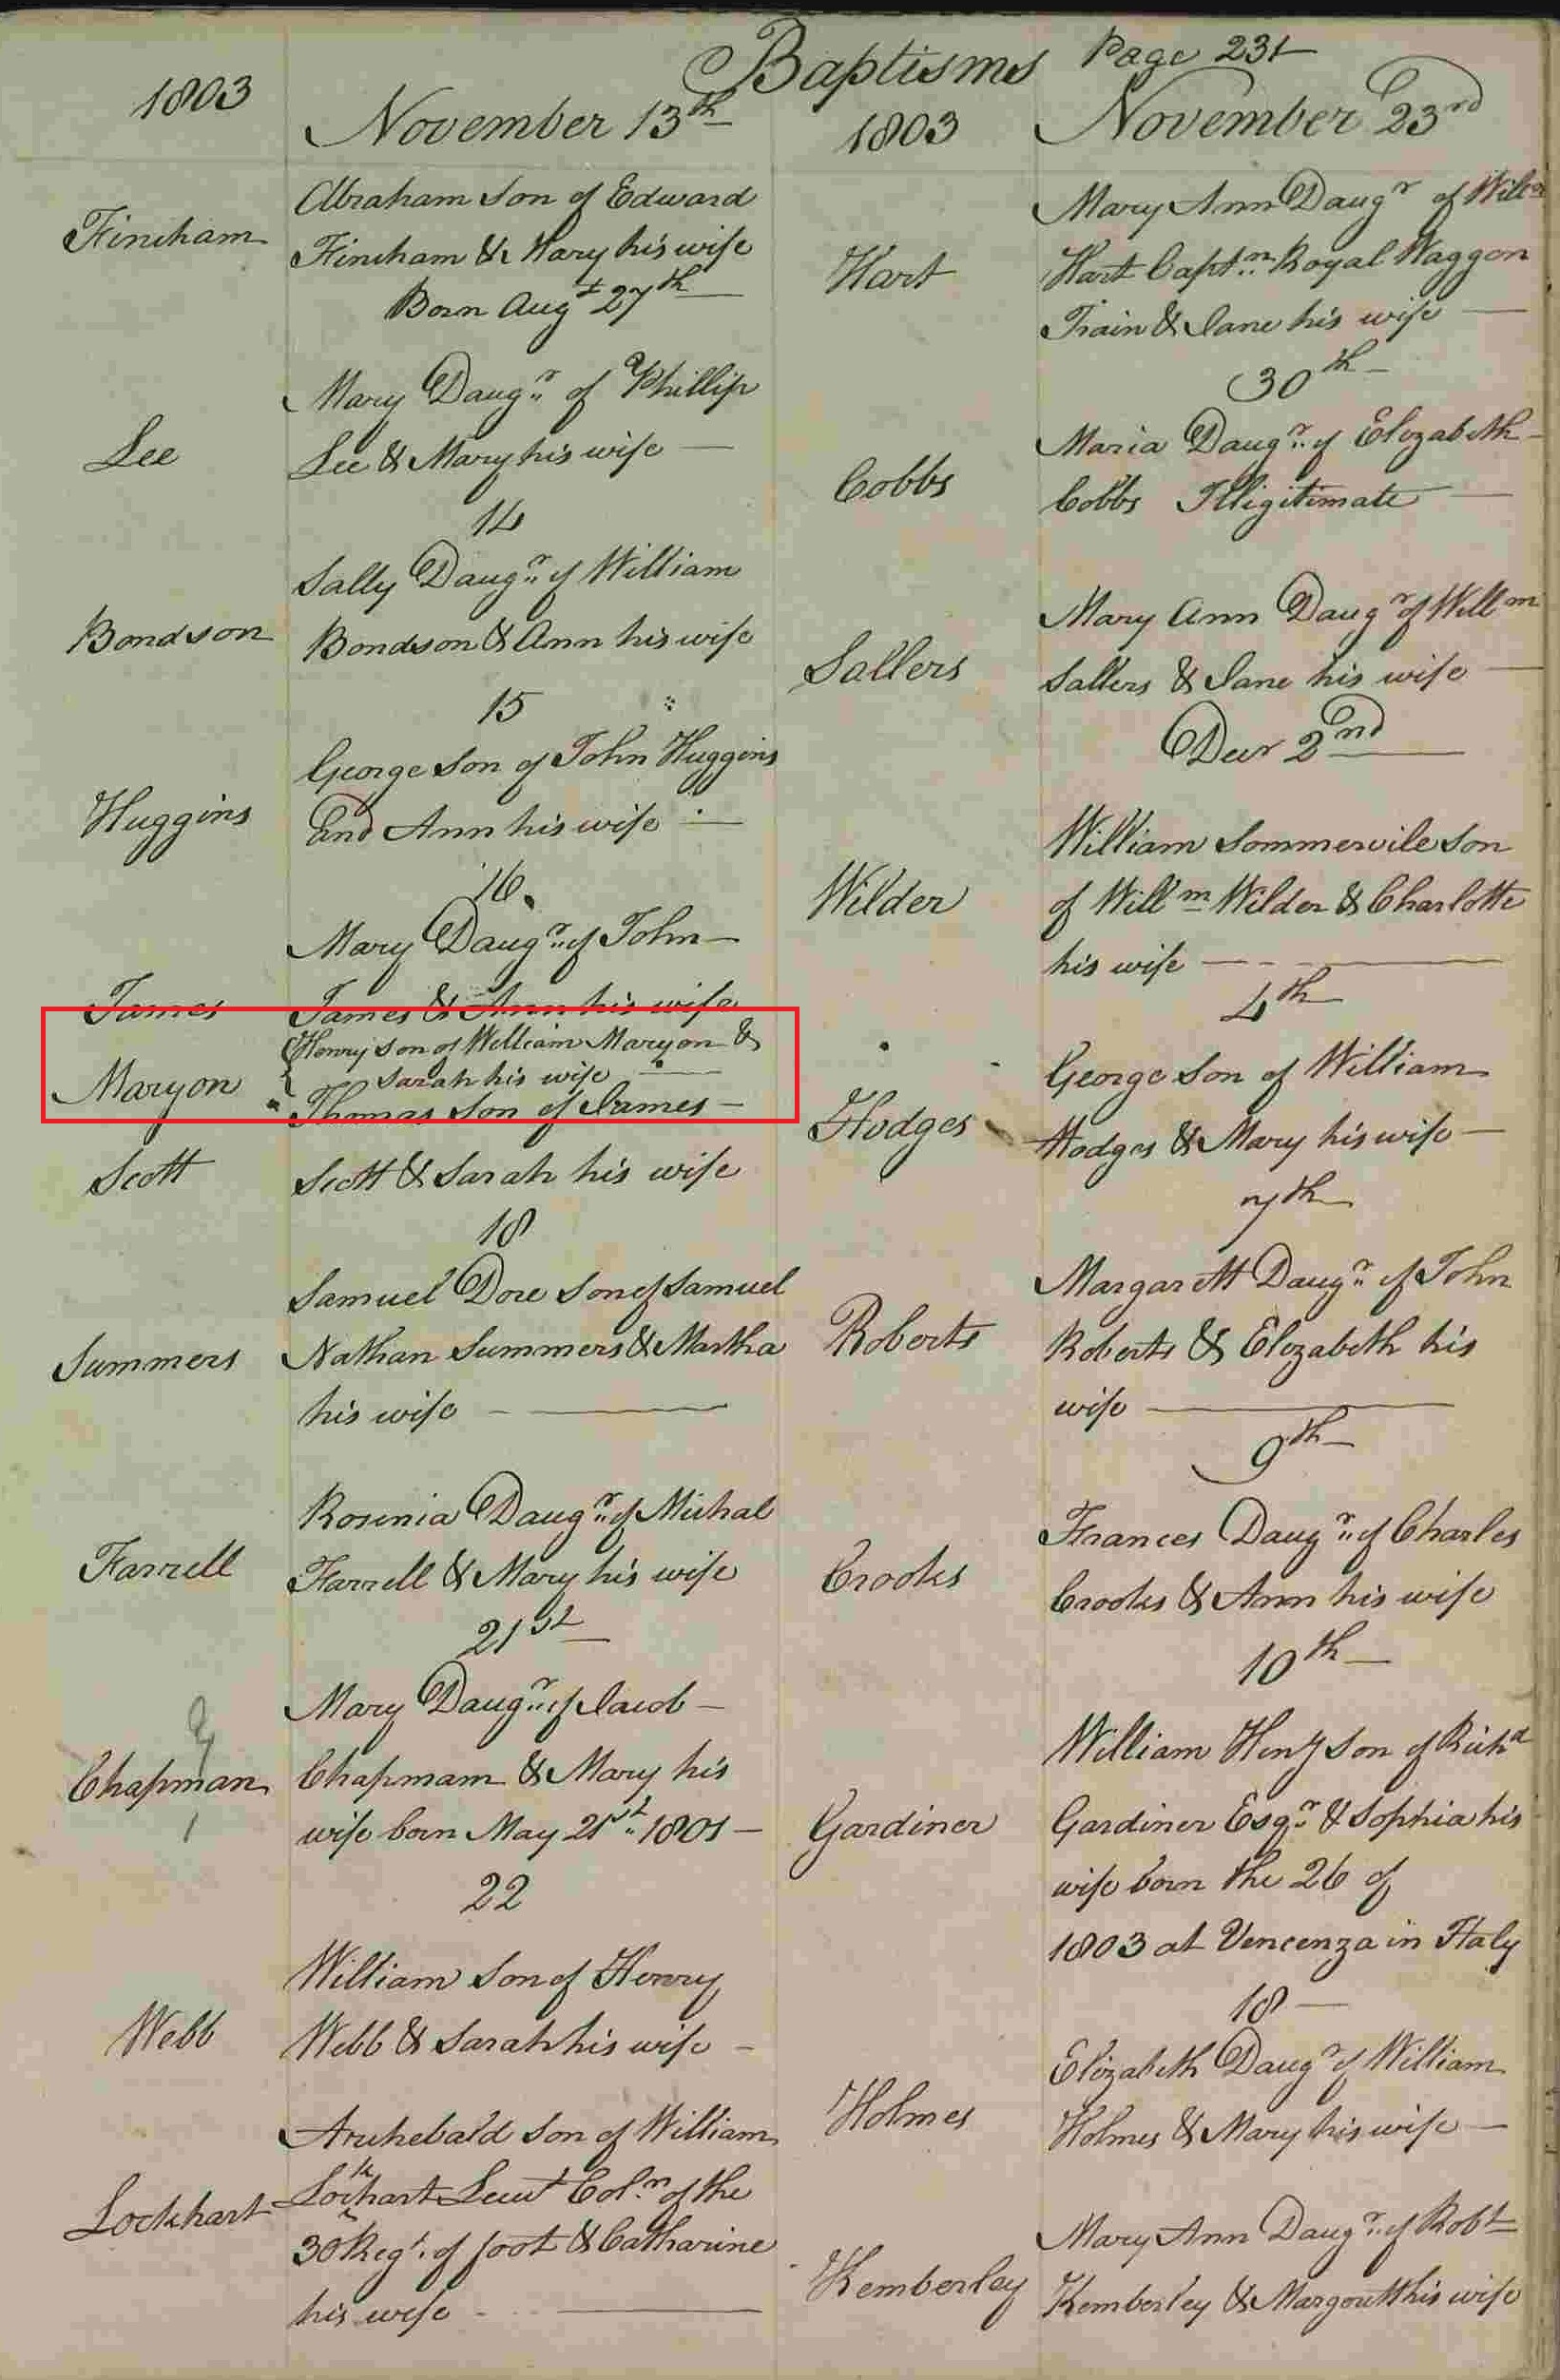 Baptisms Page 231
1803
November 13th
Fincham
Abraham Son of Edward
Fincham & Mary his wife
Born Augt 27th
Lee
Mary Daugr of Phillip
Lee & Mary his wife
14
Bondson
Sally Daugr of William
Bondson & Ann his wife
15
Huggins
George Son of John Huggins
And Ann his wife
16
James
Mary Daugr of John
James & Ann his wife
Maryon
Henry son of William Maryon &
Sarah his wife
Scott
Thomas Son of James
Scott & Sarah his wife
18
Summers
Samuel Dore Son of Samuel
Nathan Summers & Martha
his wife
Farrell
Rosinia Daugr of Michal
Farrell & Mary his wife
21st
Chapman
Mary Daugr of Jacob
Chapmam & Mary his
wife born May 21st 1801
22
Webb
William Son of Henry
Webb & Sarah his wife
Lockhart
Archebald Son of William
Lockhart Lieut Coln of the
30 Regt. of foot & Catharine
his wife
1803
November 23rd
Hart
Mary Ann Daugr of Willm
Hart Captn Royal Waggon
Train & Jane his wife
30th
Cobbs
Maria Daugr of Elizabeth
Cobbs Illigitimate
Sallers
Mary Ann Daugr of Willm
Sallers & Jane his wife
Decr 2nd
Wilder
William Sommervile Son
of Willm Wilder & Charlotte
his wife
4th
Hodges
George Son of William
Hodges & Mary his wife
7th
Roberts
Margarett Daugr of John
Roberts & Elizabeth his
wife
9th
Crooks
Frances Daugr of Charles
Crooks & Ann his wife
10th
Gardiner
William Heny Son of Richd
Gardiner Esqr & Sophia his
wife born the 26 of
1803 at Vencenza in Italy
18
Holmes
Elizabeth Daugr of William
Holmes & Mary his wife
Kemberley
Mary Ann Daugr of Robt
Kemberley & Margarett his wife